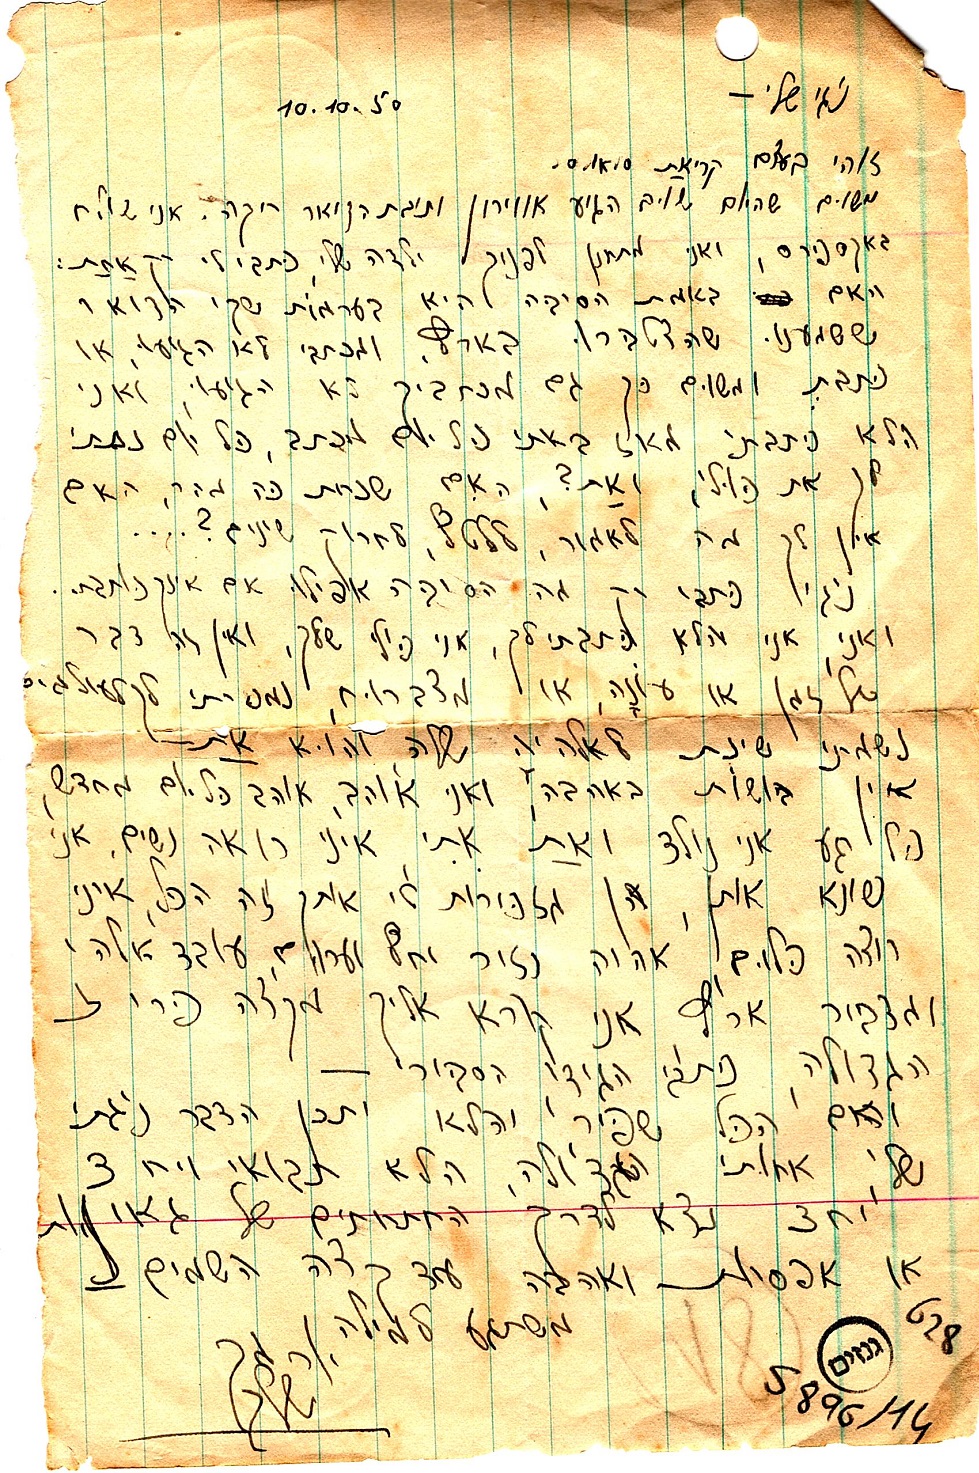 10.10.50
נגי שלי —
זוהי בעצם קריאת ס.או.ס.
משום שהיום שוב הגיע אווירון ותיבת הדואר ריקה. אני שולח
באקספרס, ואני מתחנן לפניך ילדה שלי, כתבי לי רק אמת:
האם באמת הסיבה היא בערמות שקי הדואר
ששמענו שהצטברו בארץ, ומכתבי לא הגיעו, או
כתבת ומשום כך גם מכתביך לא הגיעו, ואני
הלא כתבתי מאז באתי כל יום מכתב, כל יום נתתי
לך את כולי, ואת?, האם שכחת כה מהר, האם
אין לך מה לאמור, לחרוק שינים?...
נגי כתבי רק מה הסיבה אפילו אם אינך כותבת..
ואני, אני הלא כתבתי לך, אני כולי שלך, ואין זה דבר
של זמן או עונה, או מצב רוח, נמכרתי לך לעולמים
נשמתי שיכת לאלהיה שלה והוא את —
אין בושות באהבה, ואני אוהב, אוהב כל יום מחדש,
כל רגע אני נולד ואת אתי, איני רואה נשים, אני
שונא אותן, הן מזכירות לי אותך וזה הכל, איני
רוצה כלום, אהיה נזיר יחף וערום, עובד אלהי
ומצבור ארץ אני קורא אליך מקצה כרי
הגדולה, כתבי הגידי הסבירי —
והאם הכל שפיר, והלא יתכן הדבר נגתי
שלי, אחותי הגדולה, הלא תבואי ויחד
יחד נצא לדרך החתחתים של גאוניות
או אפסיות ואהבה עד קצה השמים
משתגע למילה
שלך
628
גנזים
5896/14